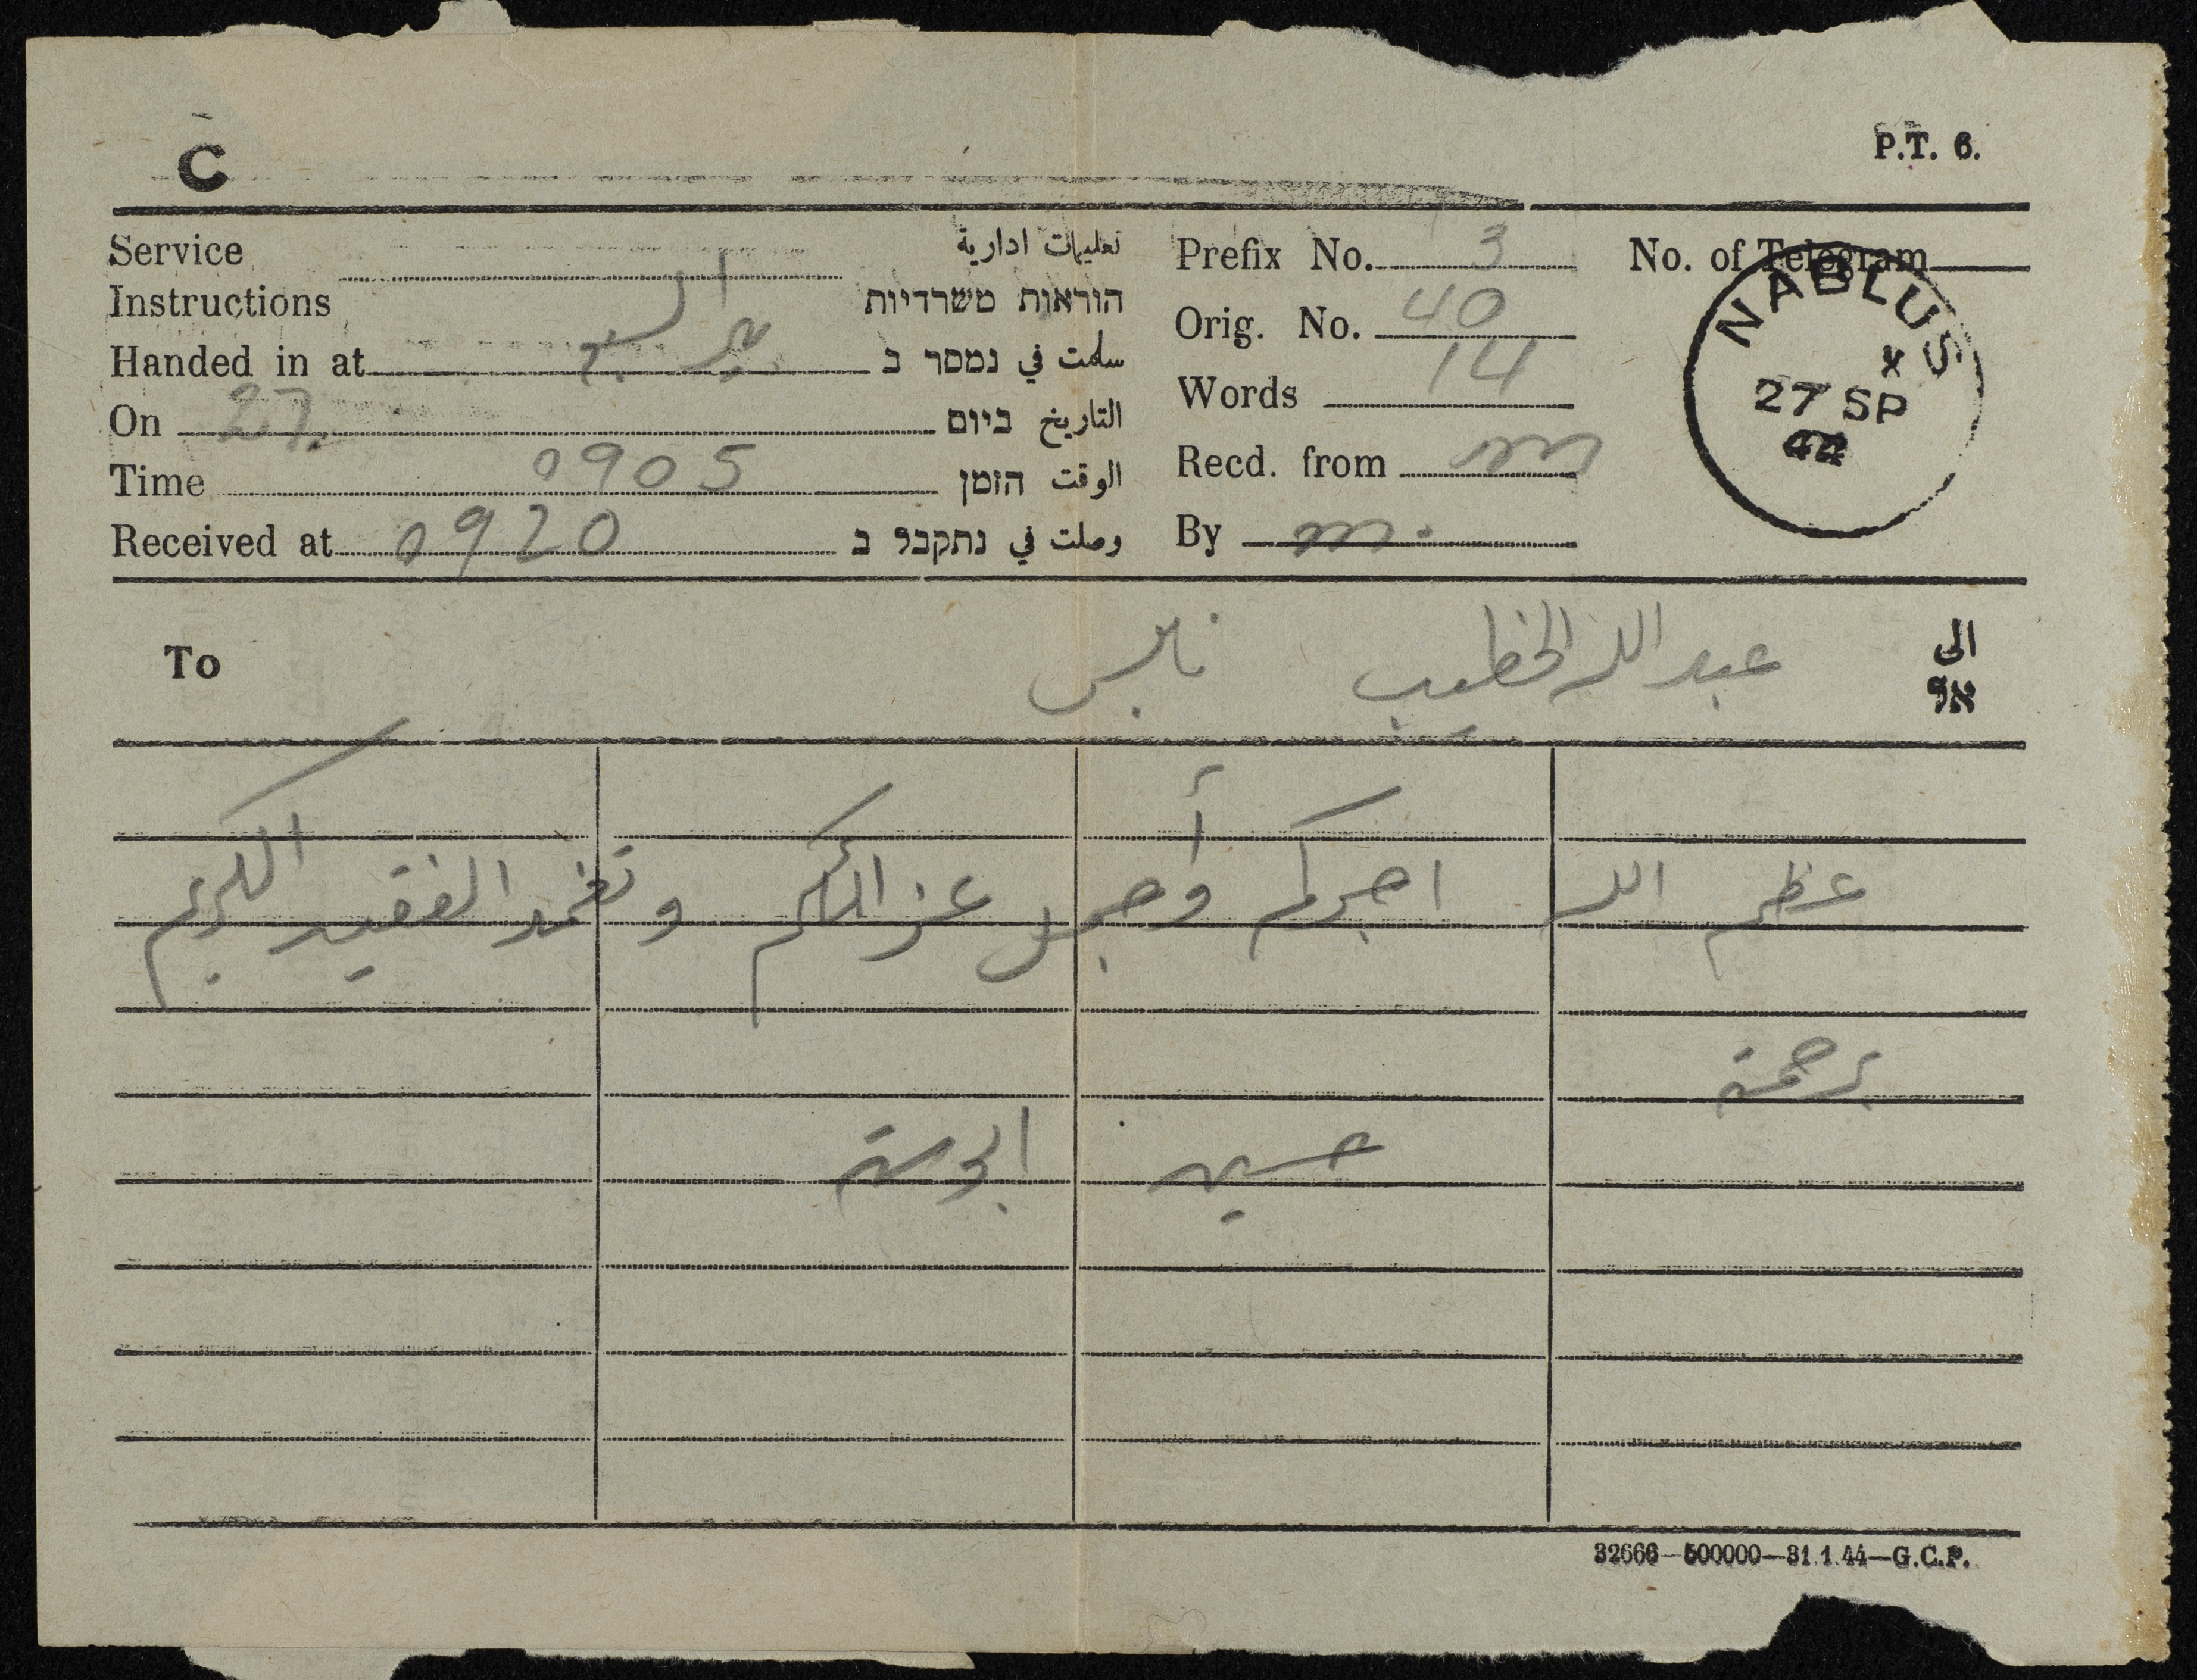 C
P.T. 6.
Service
Instructions
تعليمات ادارية
הוראות משרדיות
Handed in at
سلمت في נמסר ב
On 27.
التاريخ ביום
Time 0905
الوقت הזמן
Received at 0920
وصلت في נתקבל ב
Prefix No. 3
Orig. No. 40
Words 14
Recd. from m
By m.
No. of Telegram
NABLUS
x
27 SP
44
To
عبد الله الخطيب نابلس
الى
אל
عظم الله اجركم وأجمل عزائكم وتغمد الفقيد الكريم
برحمة
حسيب ابوستة
32666-500000-31.1.44-G.C.P.